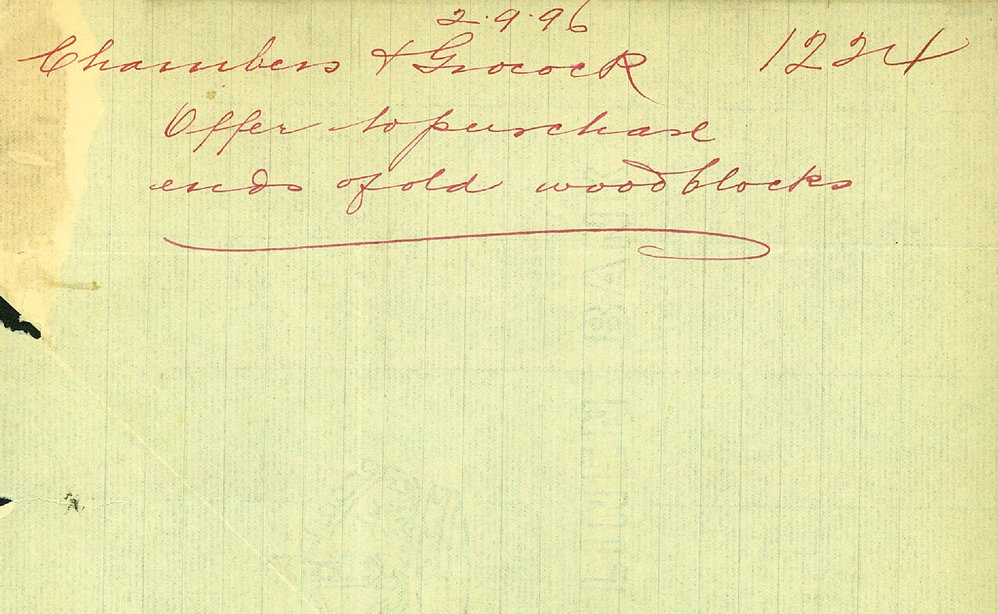 2.9.96
Chambers & Grocock 1224
Offer to purchase
ends of old woodblocks